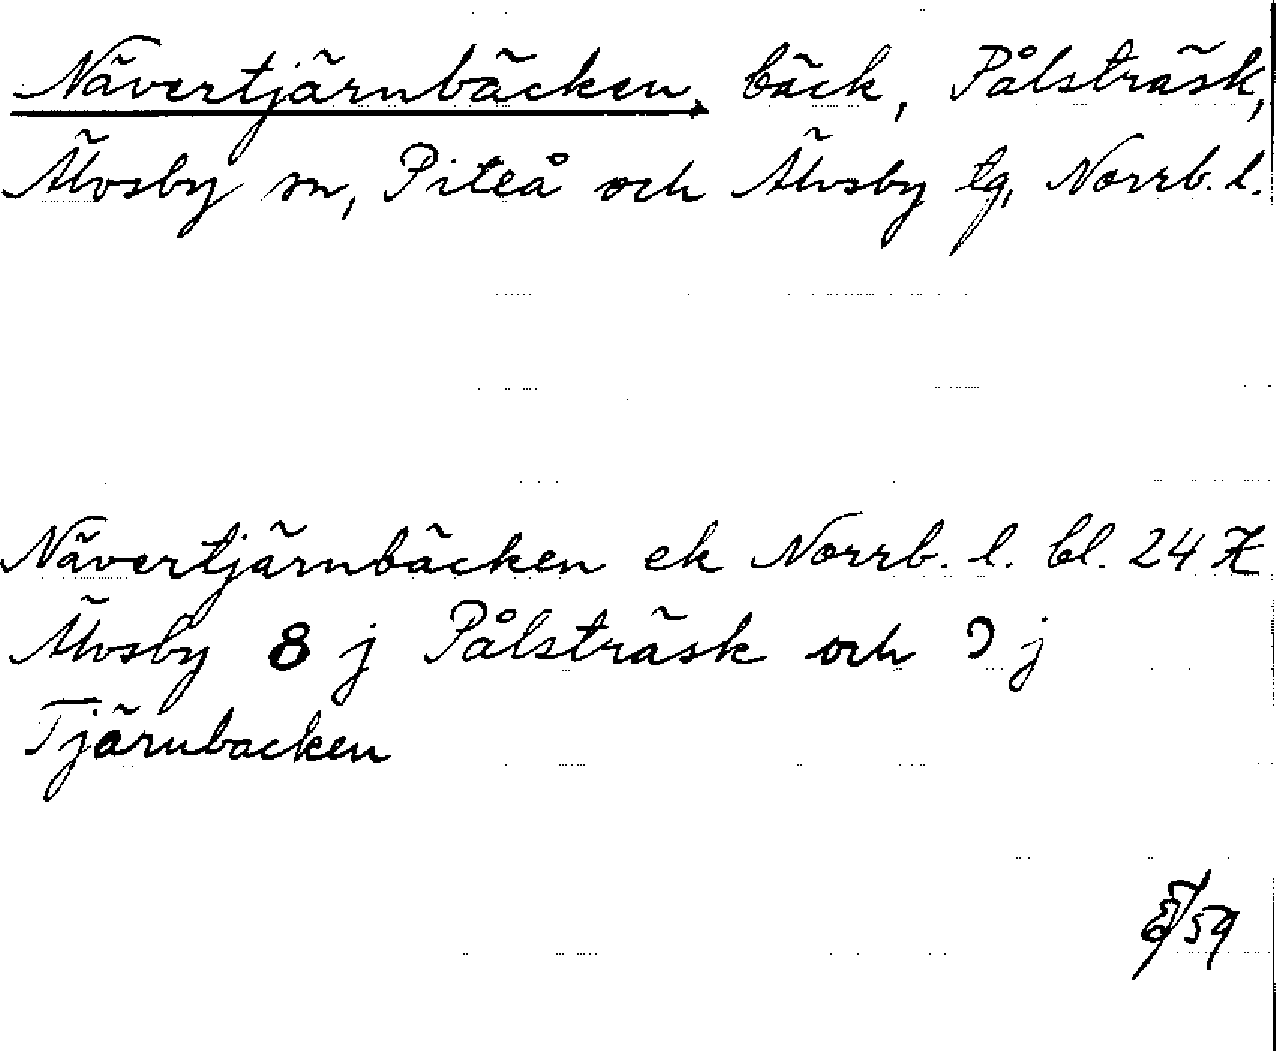 Nävertjärnbäcken, bäck, Pålsträsk,
Älvsby sn, Piteå och Älvsby tg, Norrb. l.
Nävertjärnbäcken ek Norrb. l. bl. 24
Älvsby 8 j Pålsträsk och 9 j
Tjärnbacken
/59